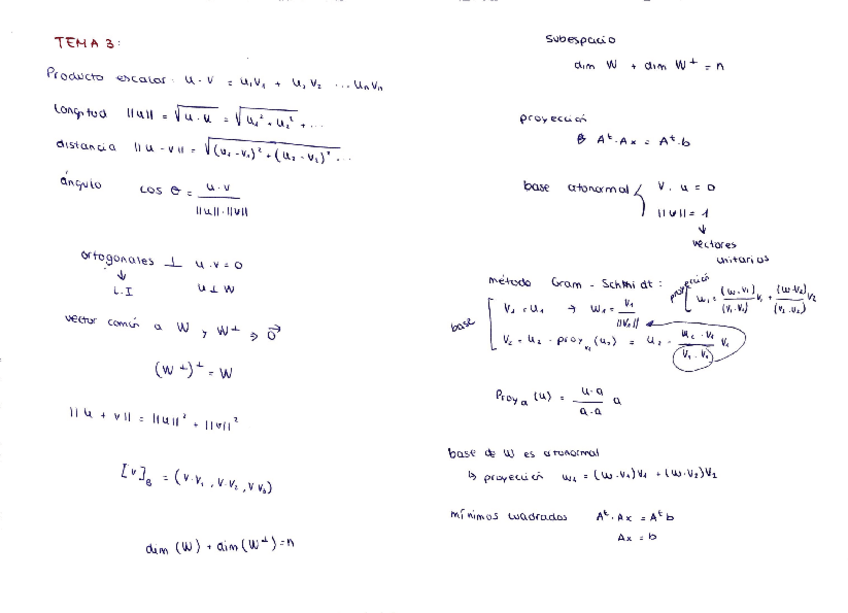 TEMA 3:
Producto escalar: u · v = u₁v₁ + u₂v₂ ... uₙvₙ
longitud ||u|| = √(u · u) = √(u₁² + u₂² + ...
distancia ||u - v|| = √((u₁ - v₁)² + (u₂ - v₂)² ...
ángulo cos θ = u · v / ||u|| · ||v||
ortogonales ⊥ u · v = 0
↓
L.I u ⊥ w
vector común a W y W⊥ ⇒ 0⃗
(W⊥)⊥ = W
||u + v|| = ||u||² + ||v||²
[v]B = (v·v₁, v·v₂, v v₃)
dim (W) + dim (W⊥) = n
subespacio
dim W + dim W⊥ = n
proyección
Aᵗ · Ax = Aᵗ · b
base ortonormal { v · u = 0
||v|| = 1
↓
vectores
unitarios
método Gram - Schmidt:
proyección [ w₁ = (w·v₁)/(v₁·v₁) v₁ + (w·v₂)/(v₂·v₂) v₂
base [ v₁ = u₁ → w₁ = v₁/||v₁||
v₂ = u₂ - proyᵥ₁(u₂) = u₂ - (u₂ · v₁)/(v₁ · v₁) v₁
Proyₐ(u) = (u·a)/(a·a) a
base de W es ortonormal
↳ proyección w₁ = (w·v₁)v₁ + (w·v₂)v₂
mínimos cuadrados Aᵗ · Ax = Aᵗb
Ax = b